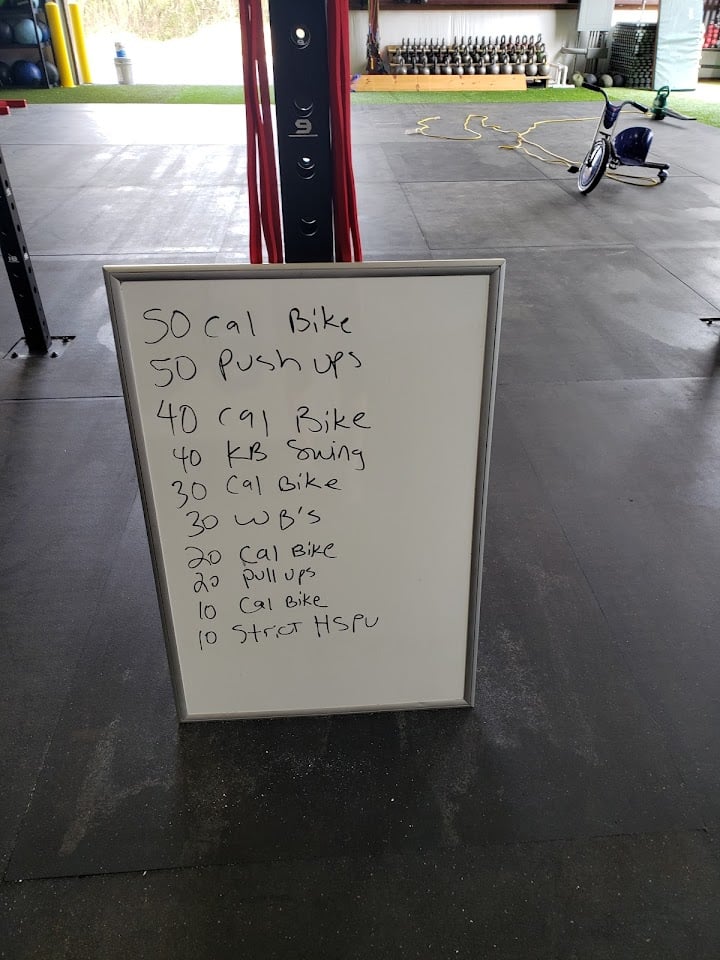 9
50 Cal Bike
50 Push ups
40 Cal Bike
40 KB Swing
30 Cal Bike
30 WB's
20 Cal Bike
20 Pull ups
10 Cal Bike
10 Strict HSPU